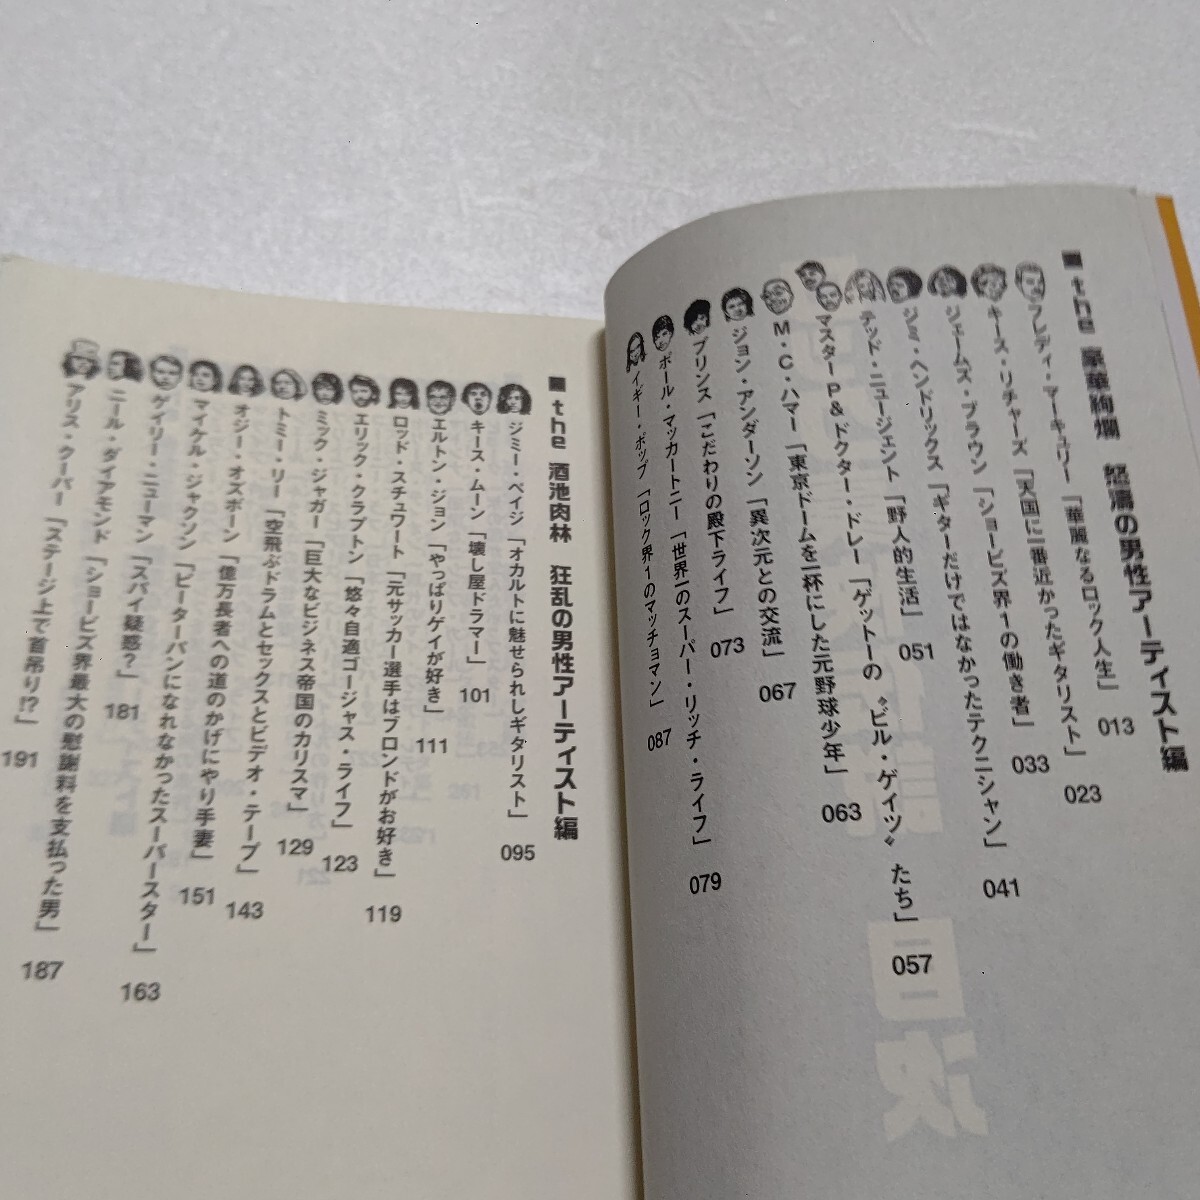 ■the 豪華絢爛 怒濤の男性アーティスト編
フレディ・マーキュリー「華麗なるロック人生」 013
キース・リチャーズ「天国に一番近かったギタリスト」 023
ジェームズ・ブラウン「ショービズ界1の働き者」 033
ジミ・ヘンドリックス「ギターだけではなかったテクニシャン」 041
テッド・ニュージェント「野人的生活」 051
マスターP&ドクター・ドレー「ゲットーの〝ビル・ゲイツ〟たち」 057
M・C・ハマー「東京ドームを一杯にした元野球少年」 063
ジョン・アンダーソン「異次元との交流」 067
プリンス「こだわりの殿下ライフ」 073
ポール・マッカートニー「世界一のスーパー・リッチ・ライフ」 079
イギー・ポップ「ロック界1のマッチョマン」 087
■the 酒池肉林 狂乱の男性アーティスト編
ジミー・ペイジ「オカルトに魅せられしギタリスト」 095
キース・ムーン「壊し屋ドラマー」 101
エルトン・ジョン「やっぱりゲイが好き」 111
ロッド・スチュワート「元サッカー選手はブロンドがお好き」 119
エリック・クラプトン「悠々自適ゴージャス・ライフ」 123
ミック・ジャガー「巨大なビジネス帝国のカリスマ」 129
トミー・リー「空飛ぶドラムとセックスとビデオ・テープ」 143
オジー・オズボーン「億万長者への道のかげにやり手妻」 151
マイケル・ジャクソン「ピーターパンになれなかったスーパースター」 163
ゲイリー・ニューマン「スパイ疑惑?」 181
ニール・ダイアモンド「ショービズ界最大の慰謝料を支払った男」 187
アリス・クーパー「ステージ上で首吊り!?」 191
目次